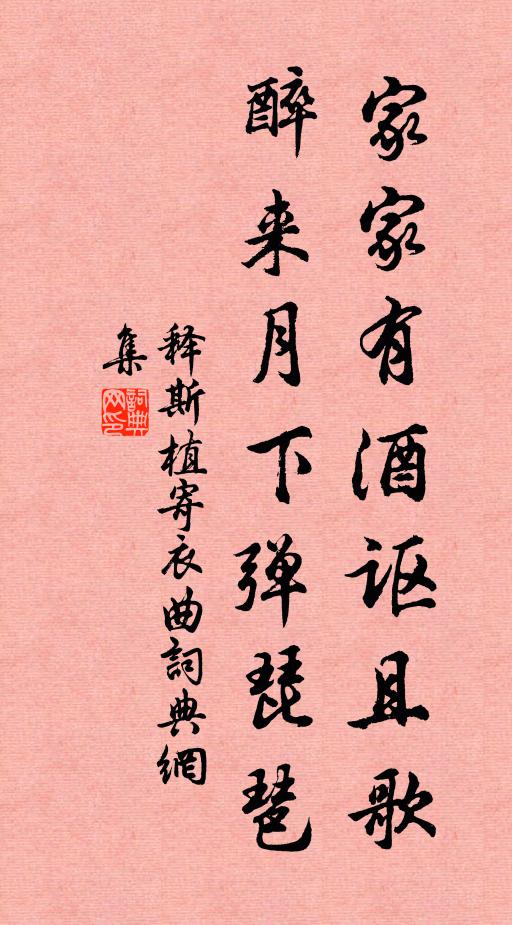 家家有酒讴且歌
醉来月下弹琵琶
释斯植寄衣曲詞典網
集
詞典
网印